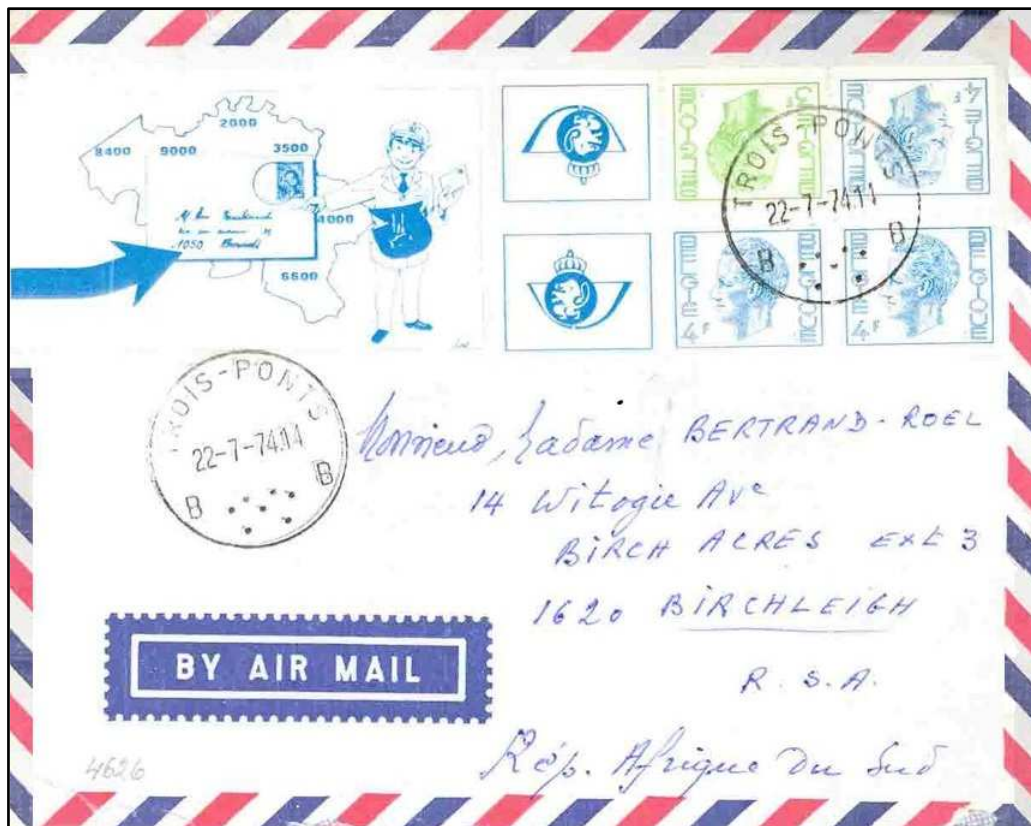 2000
8400 9000 3500
4000
1050
6600
BELGIQUE BELGIE 4F
BELGIQUE BELGIE 4F
4F
TROIS-PONTS
22-7-74.14
B B
TROIS-PONTS
22-7-74.14
B B
Monsieur, Madame BERTRAND-ROEL
14 Witogie Ave
BIRCH ACRES EXT 3
1620 BIRCHLEIGH
R. S. A.
Rép. Afrique du Sud
BY AIR MAIL
4626